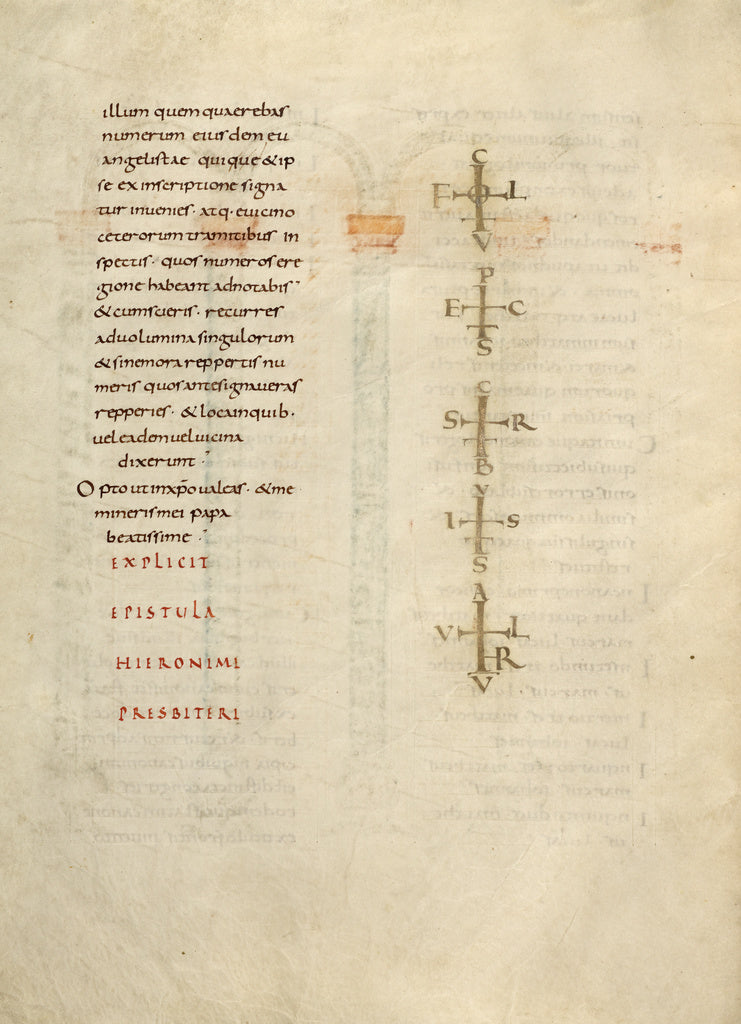 illum quem quaerebas
numerum eiusdem eu
angelistae quique & ip
se ex inscriptione signa
tur inuenies· atq· euicino
ceterorum tramitibus in
spectis· quos numeros ere
gione habeant adnotabis
& cum scieris· recurres
ad uolumina singulorum
& sine mora reppertis nu
meris quos ante signaueras
repperies· & loca in quib·
uel eadem uel uicina
dixerunt
Opto ut in xpo ualeas· & me
mineris mei papa
beatissime
EXPLICIT
EPISTULA
HIERONIMI
PRESBITERI
C
F O L
V
P
E C
S
C
S R
A
B
V
I S
S
A
V L
R
V